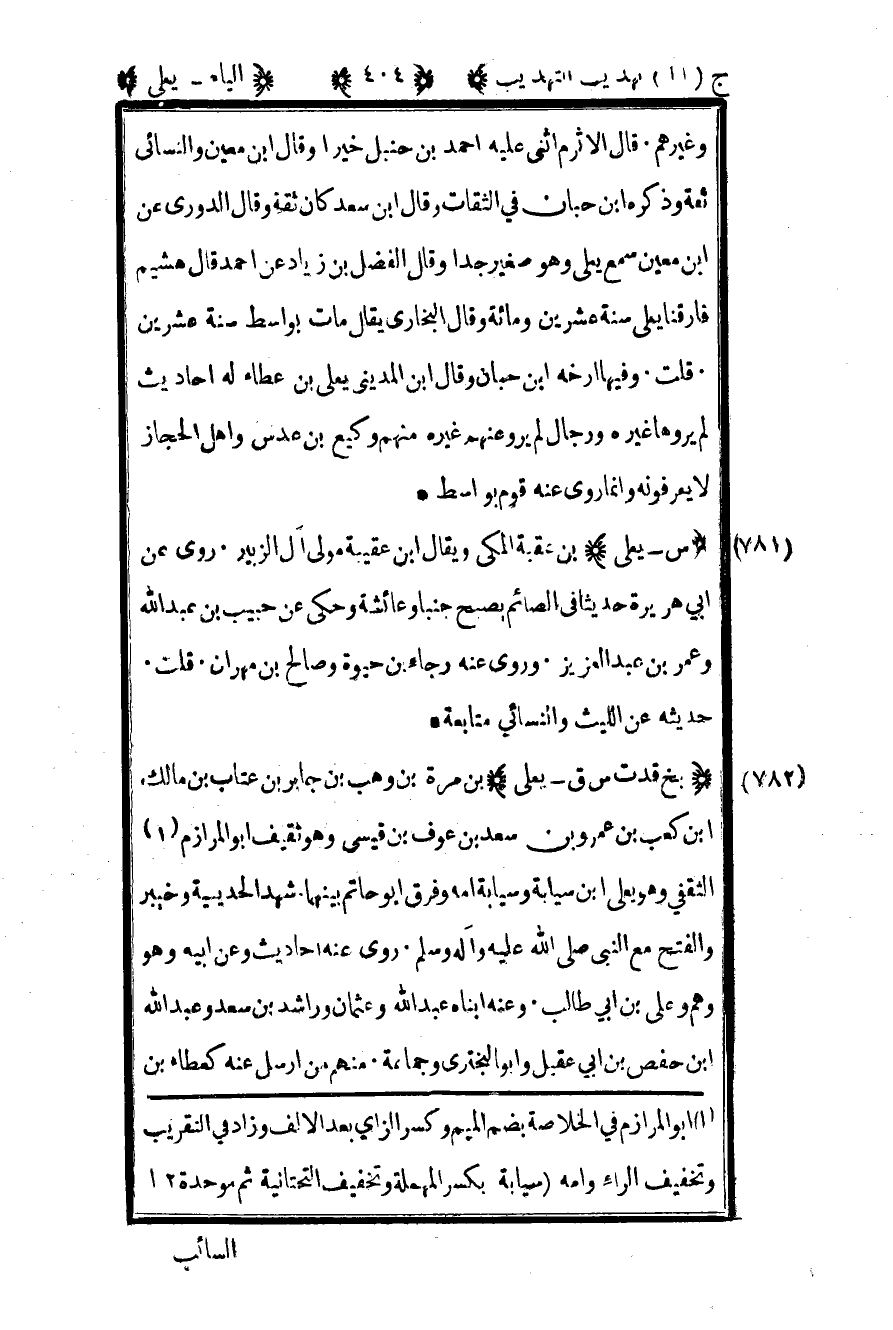 ج (١١) تهذيب التهذيب ﴿ ٤٠٤ ﴾ ﴿ الياء ـ يعلى ﴾
وغيرهم ٠ قال الاثرم اثنى عليه احمد بن حنبل خيرا وقال ابن معين والنسائى
ثقة وذكره ابن حبان في الثقات وقال ابن سعد كان ثقة وقال الدورى عن
ابن معين سمع يعلى وهو صغير جدا وقال الفضل بن زياد عن احمد قال هشيم
فارقنا يعلى سنة عشرين ومائة وقال البخارى يقال مات بواسط سنة عشرين
٠ قلت ٠ وفيها ارخه ابن حبان وقال ابن المدينى يعلى بن عطاء له احاديث
لم يروها غيره ورجال لم يرو عنهم غيره منهم وكيع بن عدس واهل الحجاز
لا يعرفونه وانما روى عنه قوم بواسط •
(٧٨١) ﴿ س ـ يعلى ﴾ بن عقبة المكى ويقال ابن عقيبة مولى آل الزبير ٠ روى عن
ابي هريرة حديثا فى الصائم يصبح جنبا وعائشة وحكى عن حبيب بن عبدالله
وعمر بن عبدالعزيز ٠ وروى عنه رجاء بن حيوة وصالح بن مهران ٠ قلت ٠
حديثه عن الليث والنسائي متابعة •
(٧٨٢) ﴿ بخ قد ت س ق ـ يعلى ﴾ بن مرة بن وهب بن جابر بن عتاب بن مالك،
ابن كعب بن عمرو بن سعد بن عوف بن قيسى وهو ثقيف ابو المرازم (١)
الثقفي وهو يعلى ابن سيابة وسيابة امه وفرق ابو حاتم بينهما. شهد الحديبية وخيبر
والفتح مع النبى صلى الله عليه وآله وسلم ٠ روى عنه احاديث وعن ابيه وهو
وهم وعلى بن ابي طالب ٠ وعنه ابناه عبدالله وعثمان وراشد بن سعد وعبدالله
ابن حفص بن ابي عقيل وابو البخترى وجماعة ٠ منهم من ارسل عنه كعطاء بن
(١) ابو المرازم في الخلاصة بضم الميم وكسر الزاي بعد الالف وزاد في التقريب
وتخفيف الراء وامه (سيابة بكسر المهملة وتخفيف التحتانية ثم موحدة ١٢
السائب